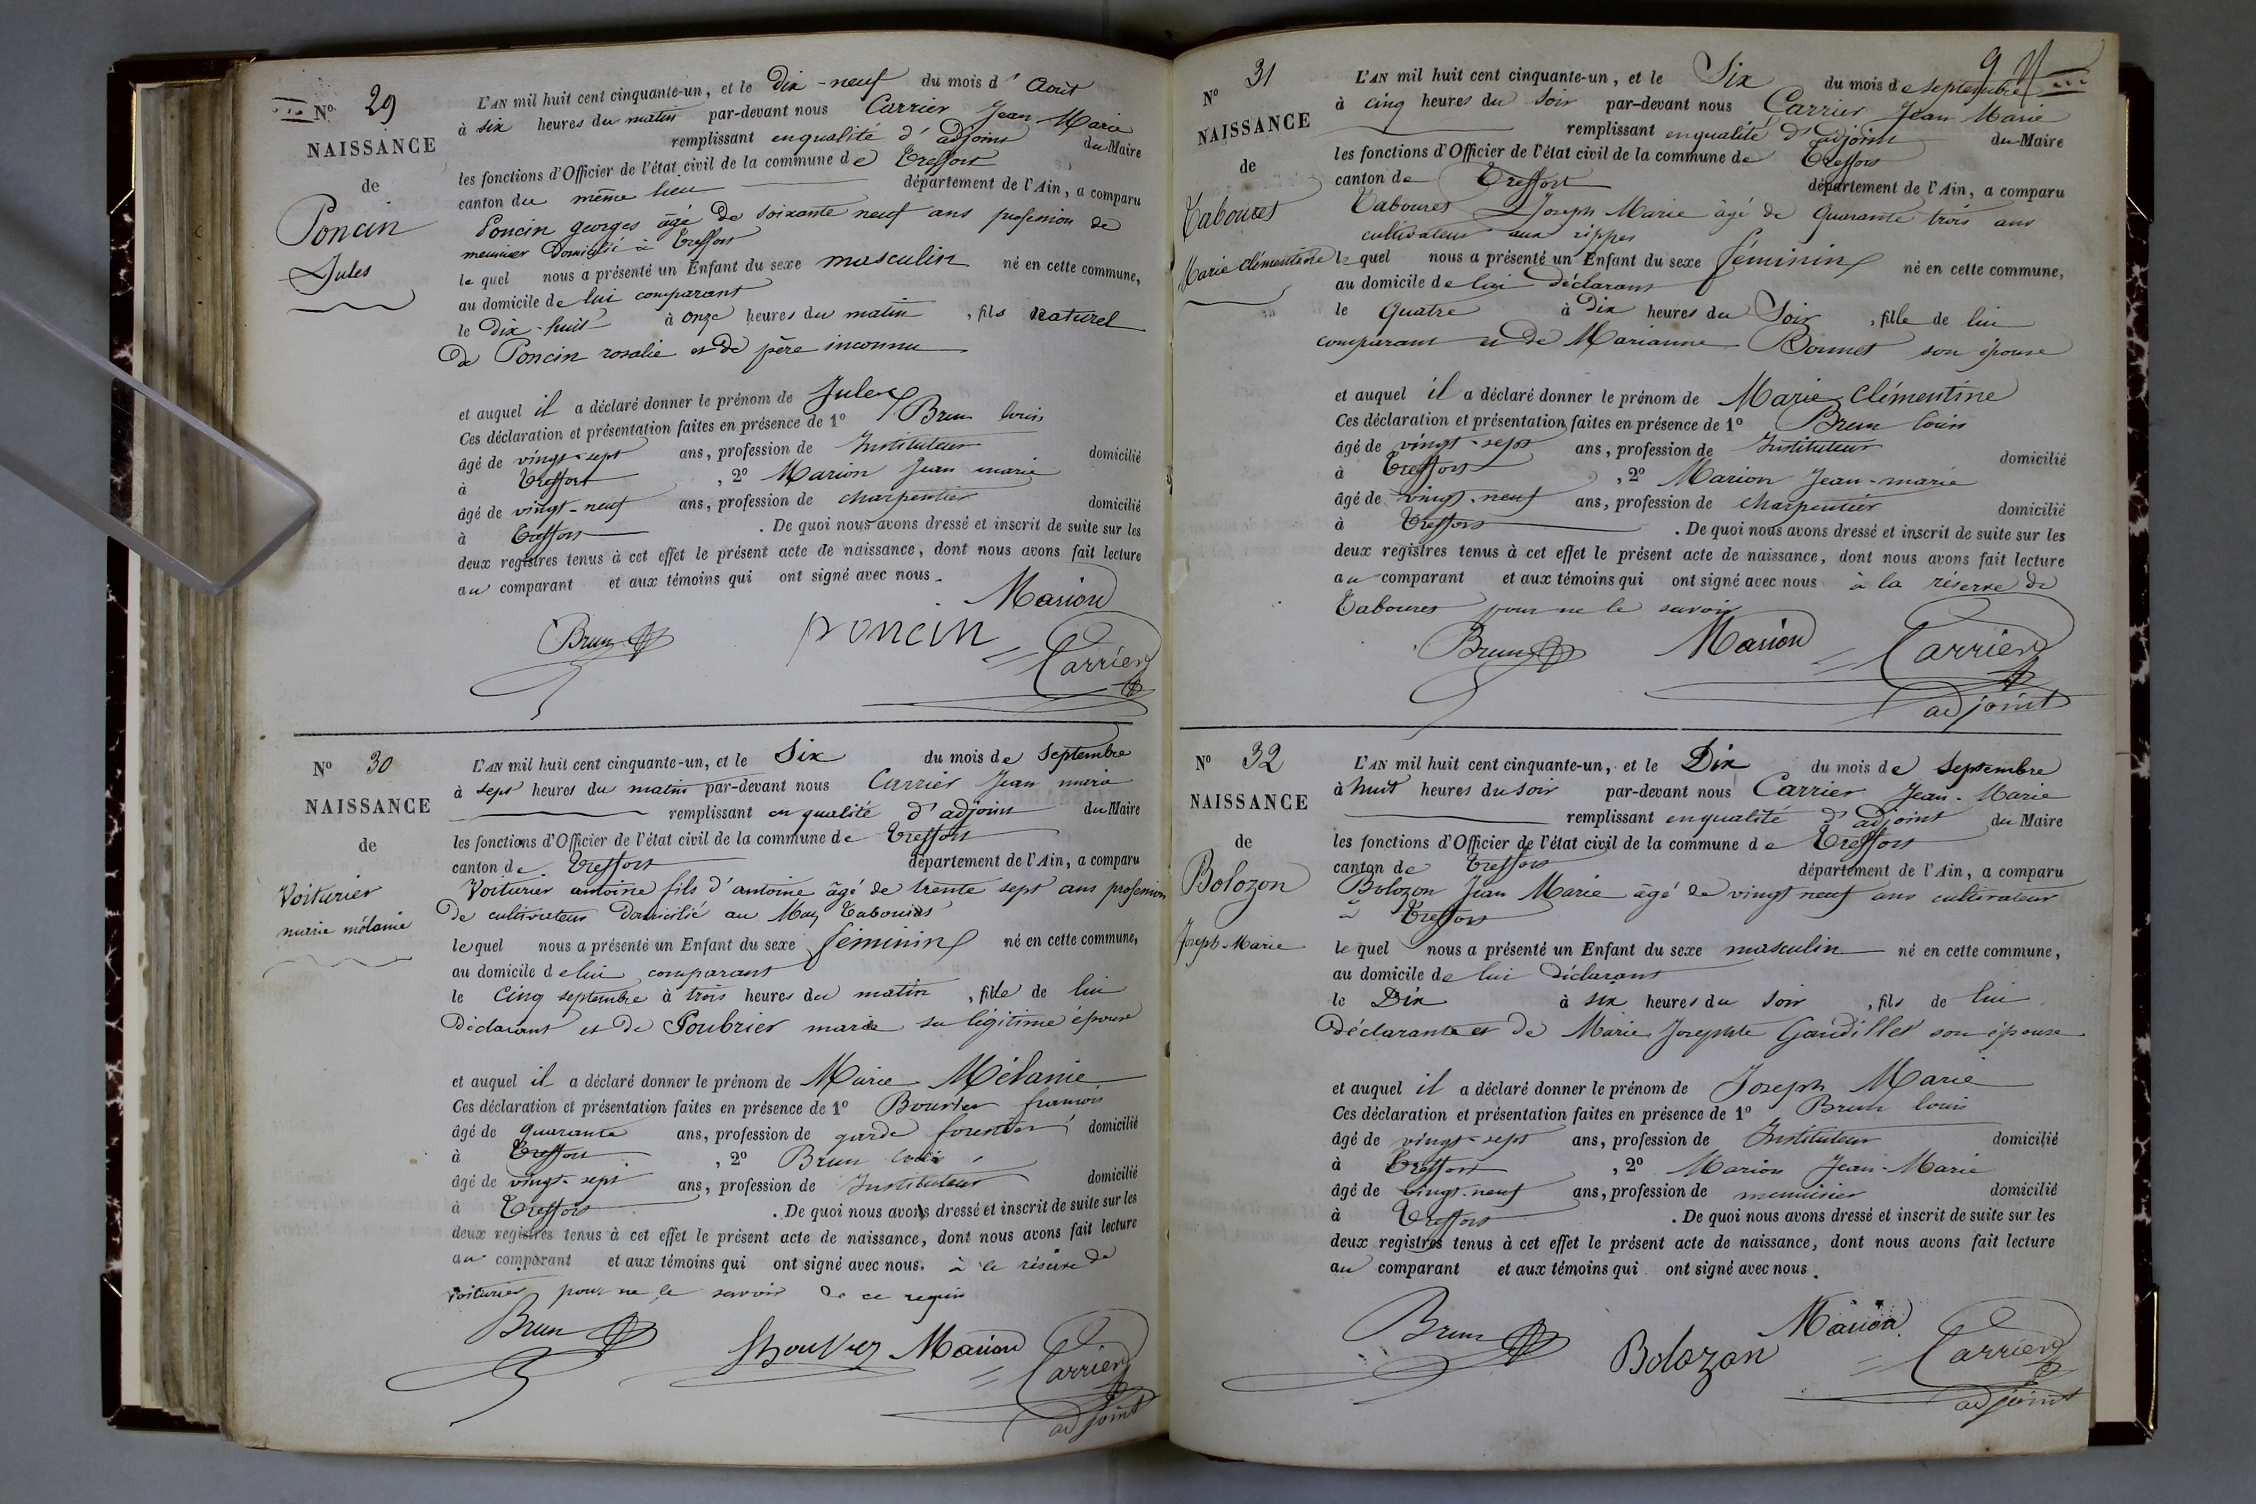 N° 29
NAISSANCE
de
Poncin
Jules
L'AN mil huit cent cinquante-un, et le Dix-neuf du mois d'Août
à six heures du matin par-devant nous Carrier Jean Marie
remplissant en qualité d'adjoint du Maire
les fonctions d'Officier de l'état civil de la commune de Treffort
canton du même lieu département de l'Ain, a comparu
Poncin georges âgé de soixante neuf ans profession de
meunier Domicilié à Treffort
le quel nous a présenté un Enfant du sexe masculin né en cette commune,
au domicile de lui comparant
le Dix-huit à onze heures du matin, fils naturel
de Poncin rosalie et de père inconnu
et auquel il a déclaré donner le prénom de Jules
Ces déclaration et présentation faites en présence de 1° Brun louis
âgé de vingt-sept ans, profession de Instituteur domicilié
à Treffort, 2° Marion Jean marie
âgé de vingt-neuf ans, profession de charpentier domicilié
à Treffort. De quoi nous avons dressé et inscrit de suite sur les
deux registres tenus à cet effet le présent acte de naissance, dont nous avons fait lecture
au comparant et aux témoins qui ont signé avec nous.
Marion
Brun poncin Carrier
N° 30
NAISSANCE
de
Voiturier
marie mélanie
L'AN mil huit cent cinquante-un, et le Six du mois de Septembre
à sept heures du matin par-devant nous Carrier Jean marie
remplissant en qualité d'adjoint du Maire
les fonctions d'Officier de l'état civil de la commune de Treffort
canton de Treffort département de l'Ain, a comparu
Voiturier antoine fils d'antoine âgé de trente sept ans profession
de cultivateur Domicilié au
le quel nous a présenté un Enfant du sexe féminin né en cette commune,
au domicile de lui comparant
le Cinq septembre à trois heures du matin, fille de lui
Déclarant et de Poubrier marie sa légitime épouse
et auquel il a déclaré donner le prénom de Marie Mélanie
Ces déclaration et présentation faites en présence de 1° Bouvier francois
âgé de quarante ans, profession de garde forestier domicilié
à Treffort, 2° Brun louis
âgé de vingt-sept ans, profession de Instituteur domicilié
à Treffort. De quoi nous avons dressé et inscrit de suite sur les
deux registres tenus à cet effet le présent acte de naissance, dont nous avons fait lecture
au comparant et aux témoins qui ont signé avec nous. à la réserve de
voiturier pour ne le savoir de ce requis
Brun Bouvier Marion Carrier
adjoint
N° 31
NAISSANCE
de
Tabouret
Marie Clémentine
L'AN mil huit cent cinquante-un, et le Six du mois de septembre
à cinq heures du soir par-devant nous Carrier Jean Marie
remplissant en qualité d'adjoint du Maire
les fonctions d'Officier de l'état civil de la commune de Treffort
canton de Treffort département de l'Ain, a comparu
Tabouret Joseph Marie âgé de Quarante trois ans
cultivateur aux rippes
le quel nous a présenté un Enfant du sexe féminin né en cette commune,
au domicile de lui déclarant
le Quatre à Dix heures du Soir, fille de lui
comparant et de Marianne Bonnet son épouse
et auquel il a déclaré donner le prénom de Marie Clémentine
Ces déclaration et présentation faites en présence de 1° Brun louis
âgé de vingt-sept ans, profession de Instituteur domicilié
à Treffort, 2° Marion Jean-marie
âgé de vingt-neuf ans, profession de charpentier domicilié
à Treffort. De quoi nous avons dressé et inscrit de suite sur les
deux registres tenus à cet effet le présent acte de naissance, dont nous avons fait lecture
au comparant et aux témoins qui ont signé avec nous à la réserve de
Tabouret pour ne le savoir
Brun Marion Carrier
adjoint
N° 32
NAISSANCE
de
Bolozon
Joseph-Marie
L'AN mil huit cent cinquante-un, et le Dix du mois de Septembre
à huit heures du soir par-devant nous Carrier Jean-Marie
remplissant en qualité d'adjoint du Maire
les fonctions d'Officier de l'état civil de la commune de Treffort
canton de Treffort département de l'Ain, a comparu
Bolozon Jean Marie âgé de vingt neuf ans cultivateur
à Treffort
le quel nous a présenté un Enfant du sexe masculin né en cette commune,
au domicile de lui déclarant
le Dix à six heures du soir, fils de lui
déclarante et de Marie Josephte Gaudillet son épouse
et auquel il a déclaré donner le prénom de Joseph Marie
Ces déclaration et présentation faites en présence de 1° Brun louis
âgé de vingt-sept ans, profession de Instituteur domicilié
à Treffort, 2° Marion Jean-Marie
âgé de vingt-neuf ans, profession de menuisier domicilié
à Treffort. De quoi nous avons dressé et inscrit de suite sur les
deux registres tenus à cet effet le présent acte de naissance, dont nous avons fait lecture
au comparant et aux témoins qui ont signé avec nous.
Brun Bolozon Marion Carrier
adjoint